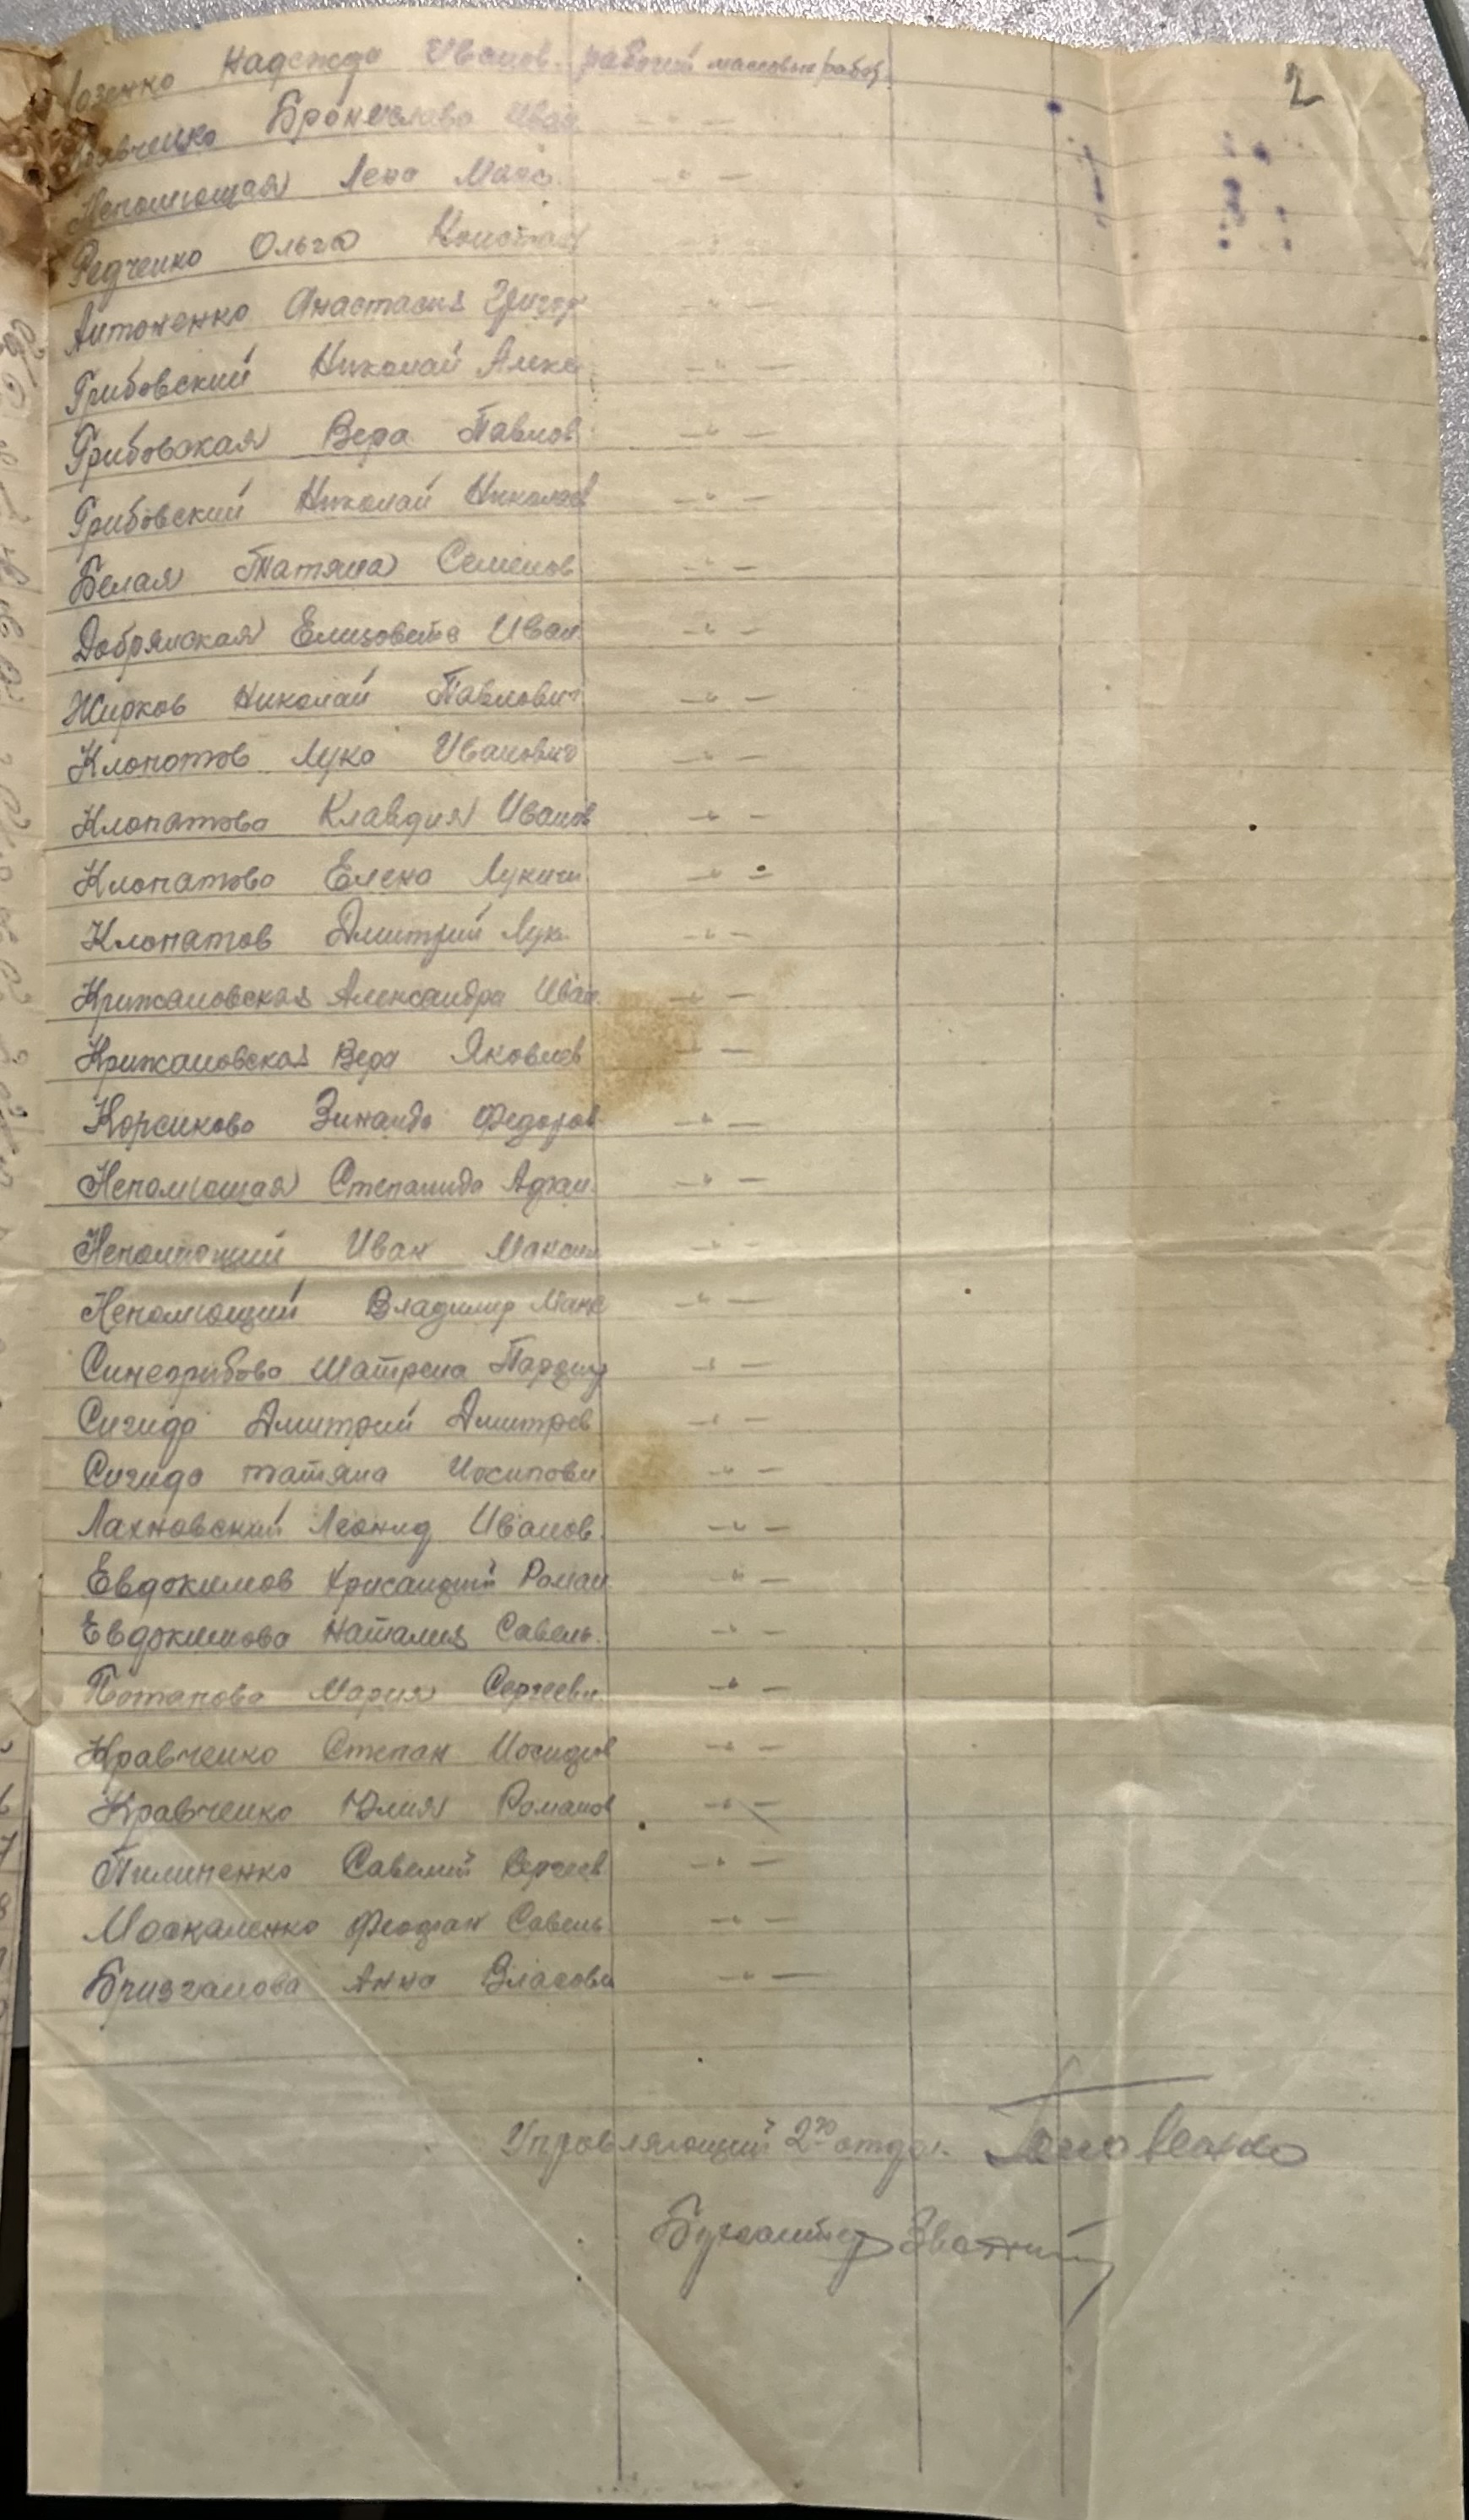 2
Надежда Иванов. рабочий массовые работ
Бронислава Иван
Непомнющая Лена Макс.
Редченко Ольга Констан
Антоненко Анастасия Григор
Грибовский Николай Алекс
Грибовская Вера Павлов
Грибовский Николай Николаев
Белая Татяна Семенов
Добрянская Елизовета Иван
Жирков Николай Павлович
Клопотов Лука Иванович
Клопатова Клавдия Иванов
Клопатова Елена Лукич
Клопатов Дмитрий Лук.
Крижановская Александра Иван.
Крижановская Вера Яковлев
Корсикова Зинаида Федоров
Непомнющая Степанида
Непомнющий Иван Максим
Непомнющий Владимир Макс
Синегрибова Матрена
Сигида Дмитрий Дмитрев
Сигида Татяна Иосипови
Лахновский Леонид Иванов.
Евдокимов Роман
Евдокимова Наталия Савель.
Потапова Мария Сергеевн.
Кравченко Степан
Кравченко Юлия Романов
Пилипенко Савелий Сергеев
Москаленко Феофан Савель
Бризгалова Анна Власовн
Управляющий 2го отдел.
Бухгалтер